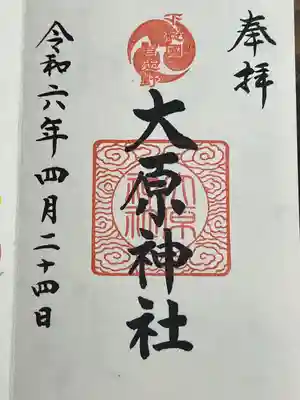 奉拝
下総國
習志野
大原神社
大原神社
令和六年四月二十四日